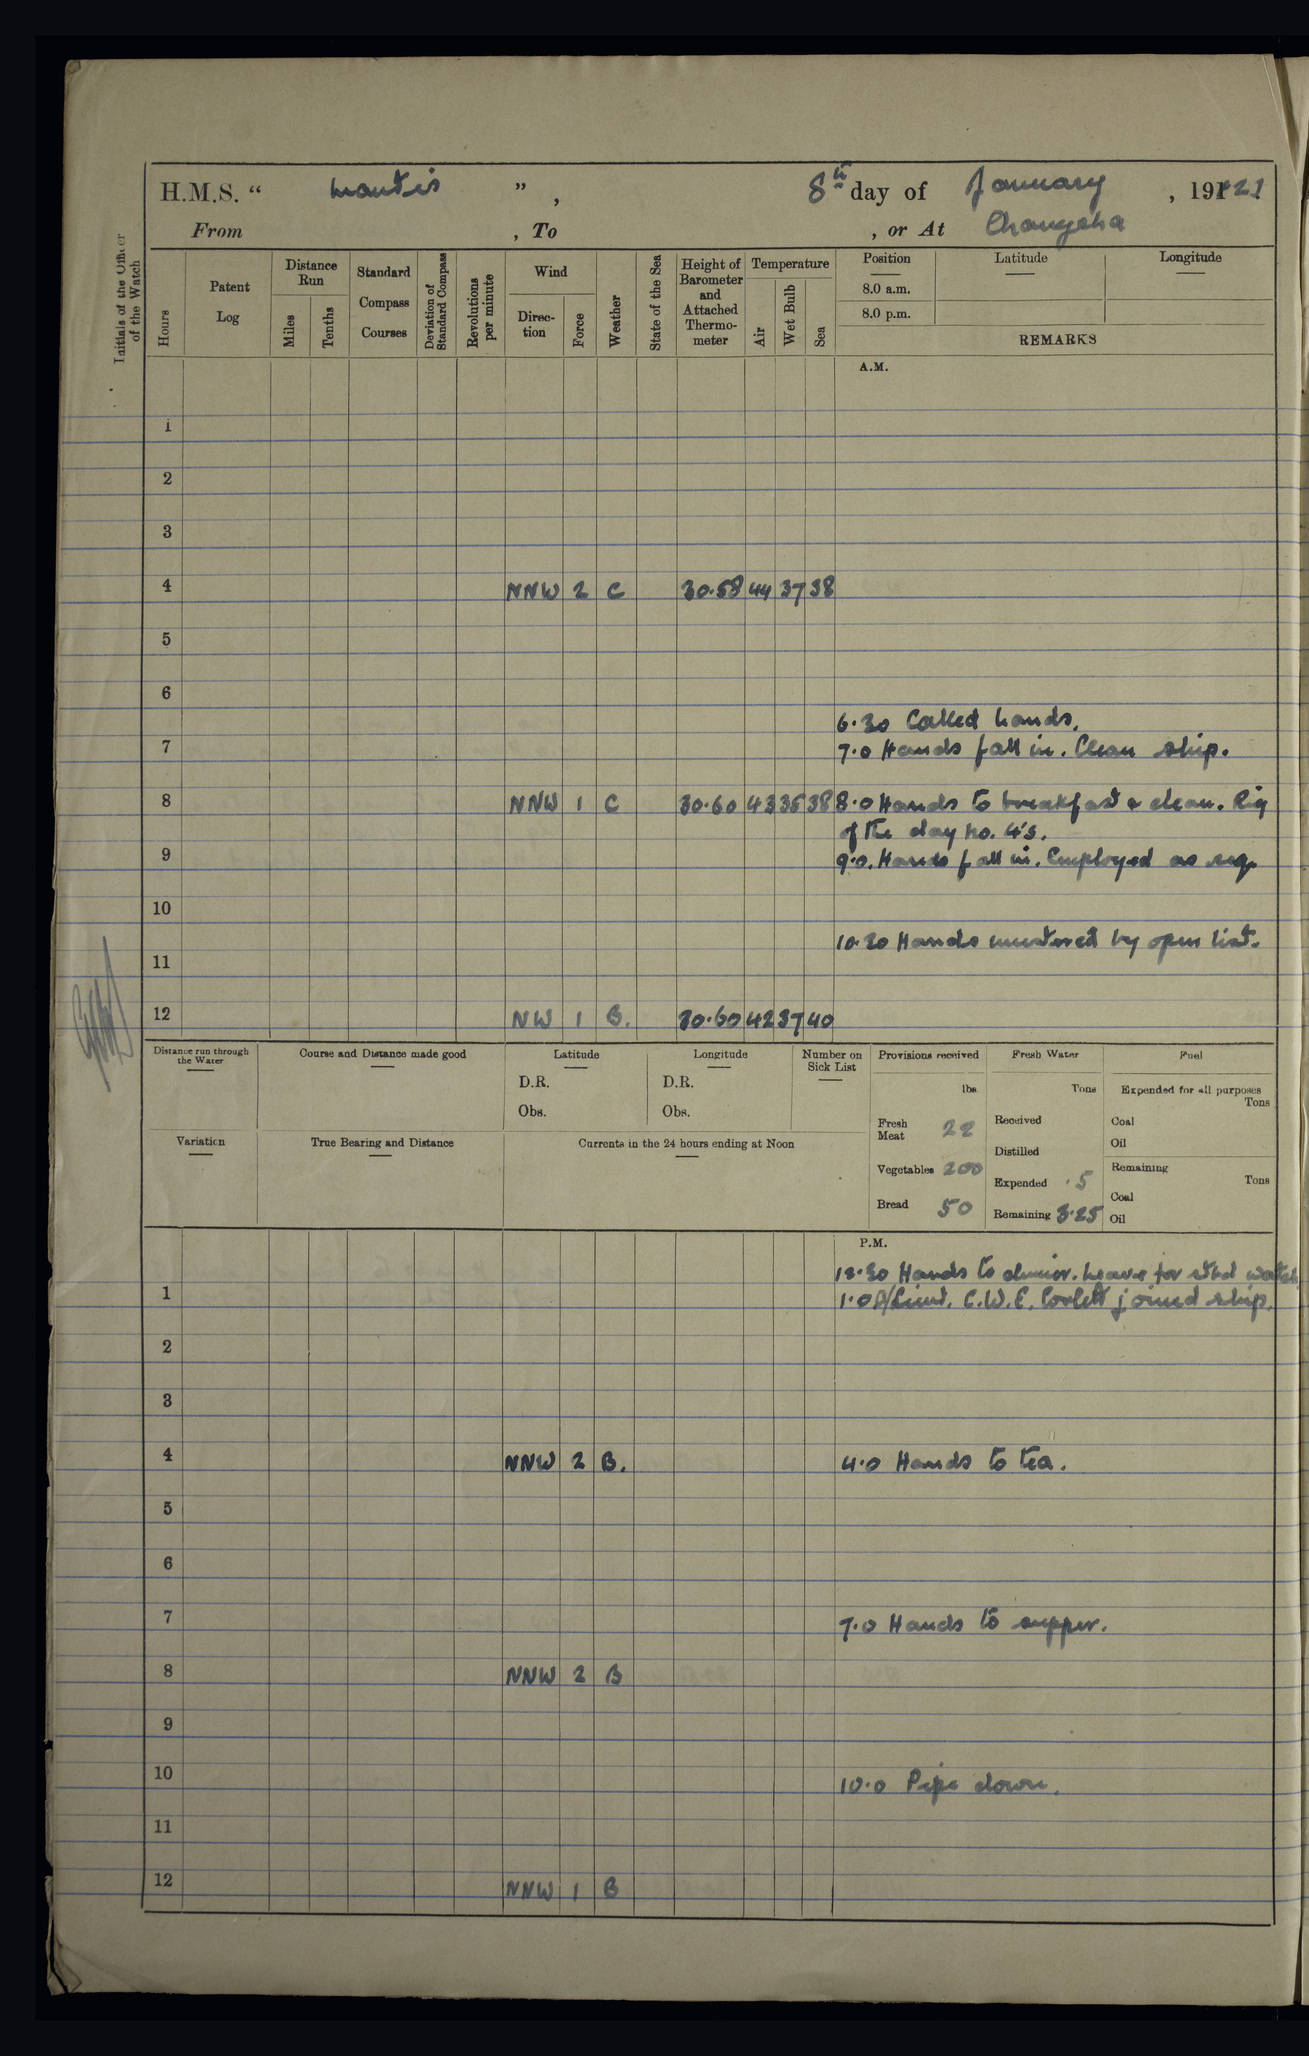 H.M.S. “ Mantis ” , 8th day of January , 1921
From , To , or At Changsha
Initials of the Officer of the Watch
Hours
Patent Log
Distance Run
Miles
Tenths
Standard Compass Courses
Deviation of Standard Compass
Revolutions per minute
Wind
Direction
Force
Weather
State of the Sea
Height of Barometer and Attached Thermometer
Temperature
Air
Wet Bulb
Sea
Position Latitude Longitude
8.0 a.m.
8.0 p.m.
REMARKS
A.M.
1
2
3
4 NNW 2 C 30.58 44 37 38
5
6
6.30 Called hands.
7 7.0 Hands fall in. Clean ship.
8 NNW 1 C 30.60 43 35 38 8.0 Hands to breakfast & clean. Rig
of the day no. 4's.
9 9.0. Hands fall in. Employed as req.
10
10.30 Hands mustered by open list.
11
12 NW 1 B. 30.60 42 37 40
Distance run through the Water
Course and Distance made good
Latitude
D.R.
Obs.
Longitude
D.R.
Obs.
Number on Sick List
Provisions received
lbs
Fresh Meat 22
Vegetables 200
Bread 50
Fresh Water
Tons
Received
Distilled
Expended .5
Remaining 3.25
Fuel
Expended for all purposes
Tons
Coal
Oil
Remaining
Tons
Coal
Oil
Variation
True Bearing and Distance
Currents in the 24 hours ending at Noon
P.M.
12.30 Hands to dinner. Leave for stbd watch
1 1.0 A/Lieut. C.W.E. Corlett joined ship.
2
3
4 NNW 2 B. 4.0 Hands to tea.
5
6
7 7.0 Hands to supper.
8 NNW 2 B
9
10 10.0 Pipe down.
11
12 NNW 1 B